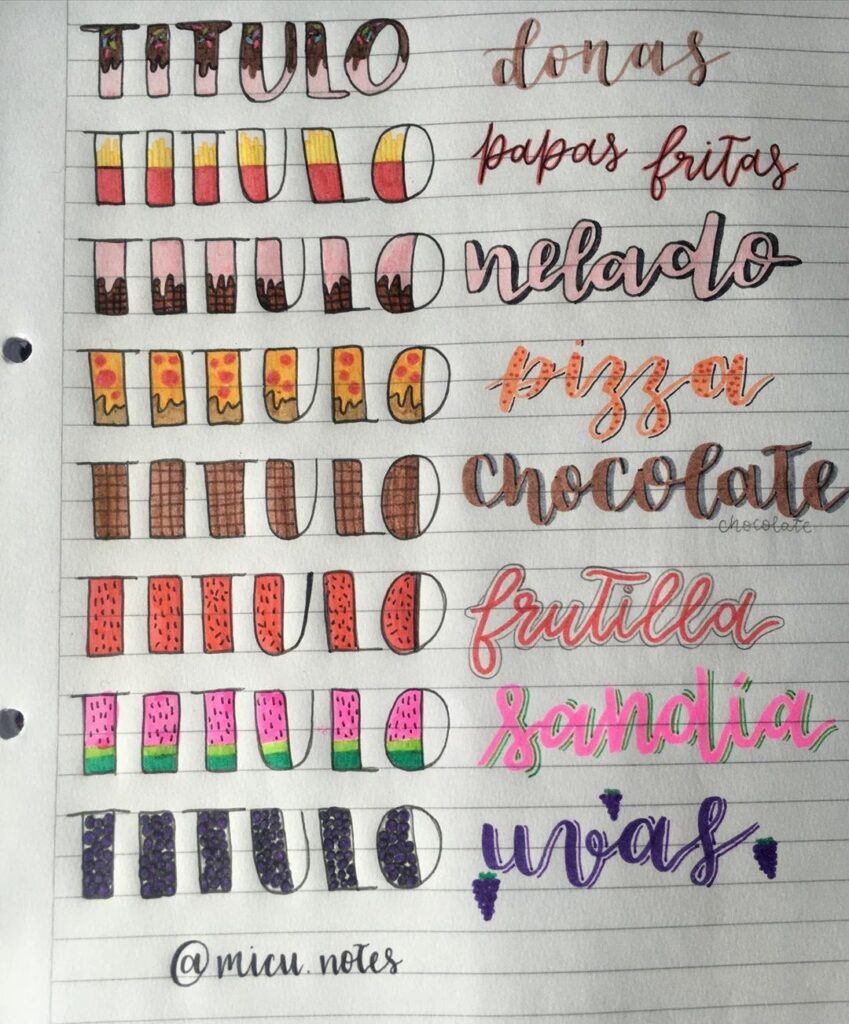 TITULO donas
TITULO papas fritas
TITULO helado
TITULO pizza
TITULO chocolate
chocolate
TITULO frutilla
TITULO sandía
TITULO uvas
@micu.notes